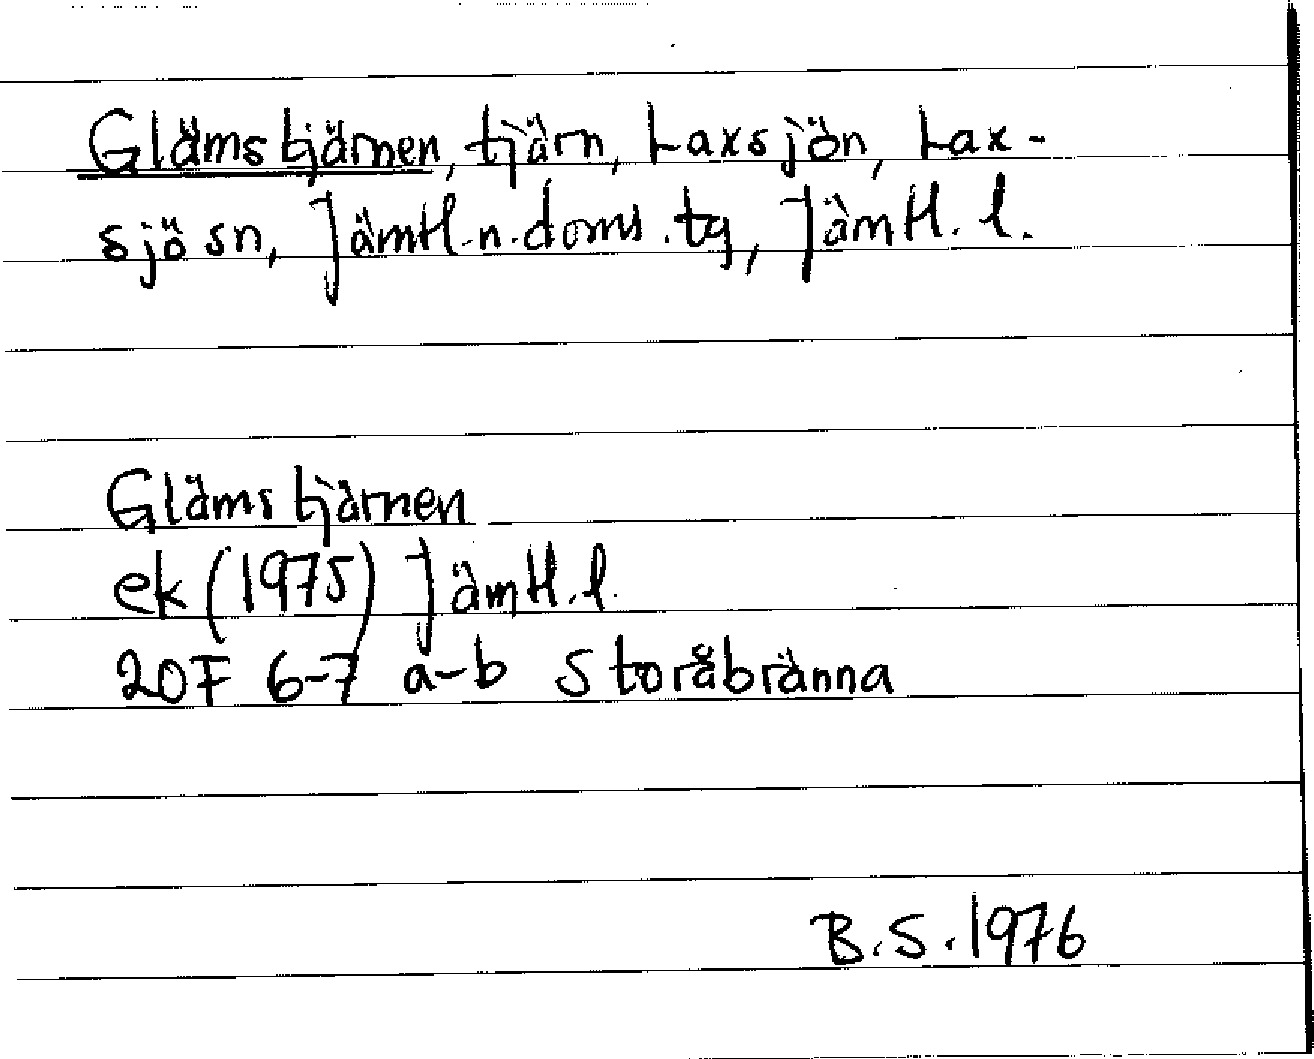 Glämstjärnen, tjärn, Laxsjön, Lax-
sjö sn, Jämtl.n.doms.tg, Jämtl.l.
Glämstjärnen
ek (1975) Jämtl.l.
20F 6-7 a-b Storåbränna
B.S. 1976